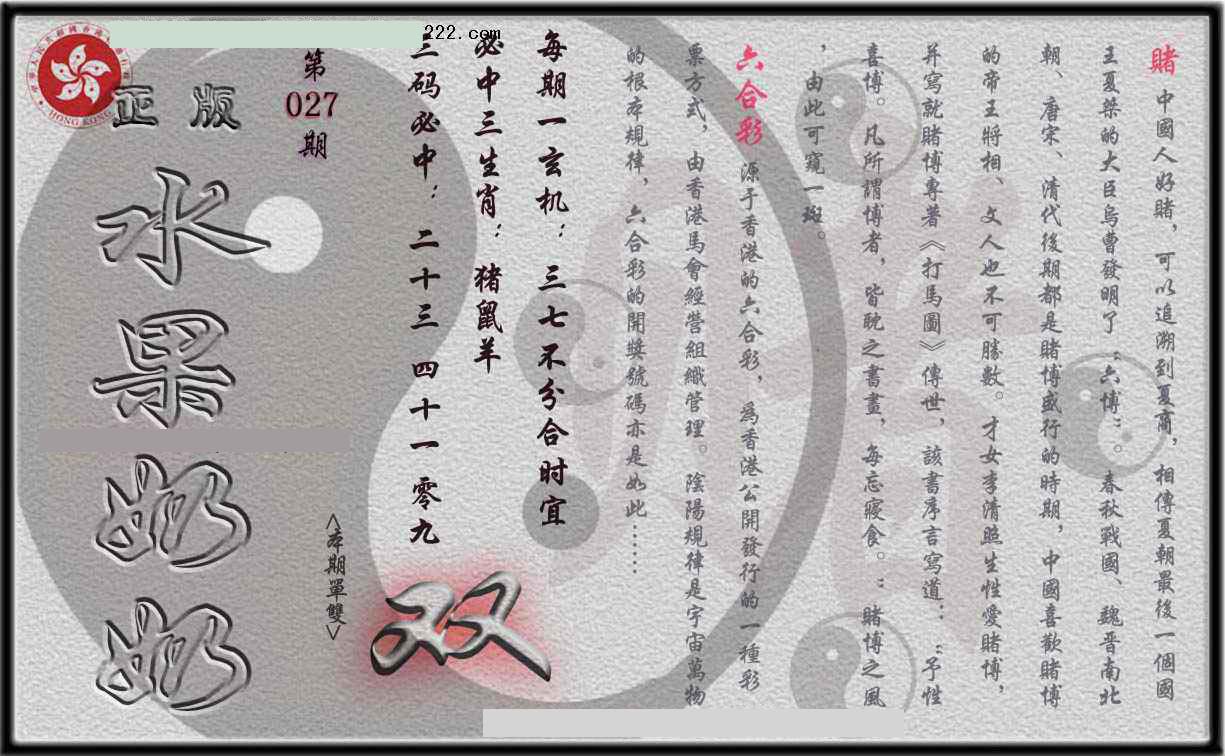 賭 中國人好賭，可以追溯到夏商，相傳夏朝最後一個國
王夏桀的大臣烏曹發明了“六博”。春秋戰國、魏晋南北
朝、唐宋、清代後期都是賭博盛行的時期，中國喜歡賭博
的帝王將相、文人也不可勝數。才女李清照生性愛賭博，
并寫就賭博專著《打馬圖》傳世，該書序言寫道：“予性
喜博。凡所謂博者，皆耽之書晝，每忘寢食。”賭博之風
，由此可窺一斑。
六合彩 源于香港的六合彩，為香港公開發行的一種彩
票方式，由香港馬會經營組織管理。陰陽規律是宇宙萬物
的根本規律，六合彩的開獎號碼亦是如此……
每期一玄机：三七不分合时宜
必中三生肖：猪鼠羊
三码必中：二十三 四十一 零九
222.com
第
027
期
<本期單雙>
双
正版
水果奶奶
HONG KONG